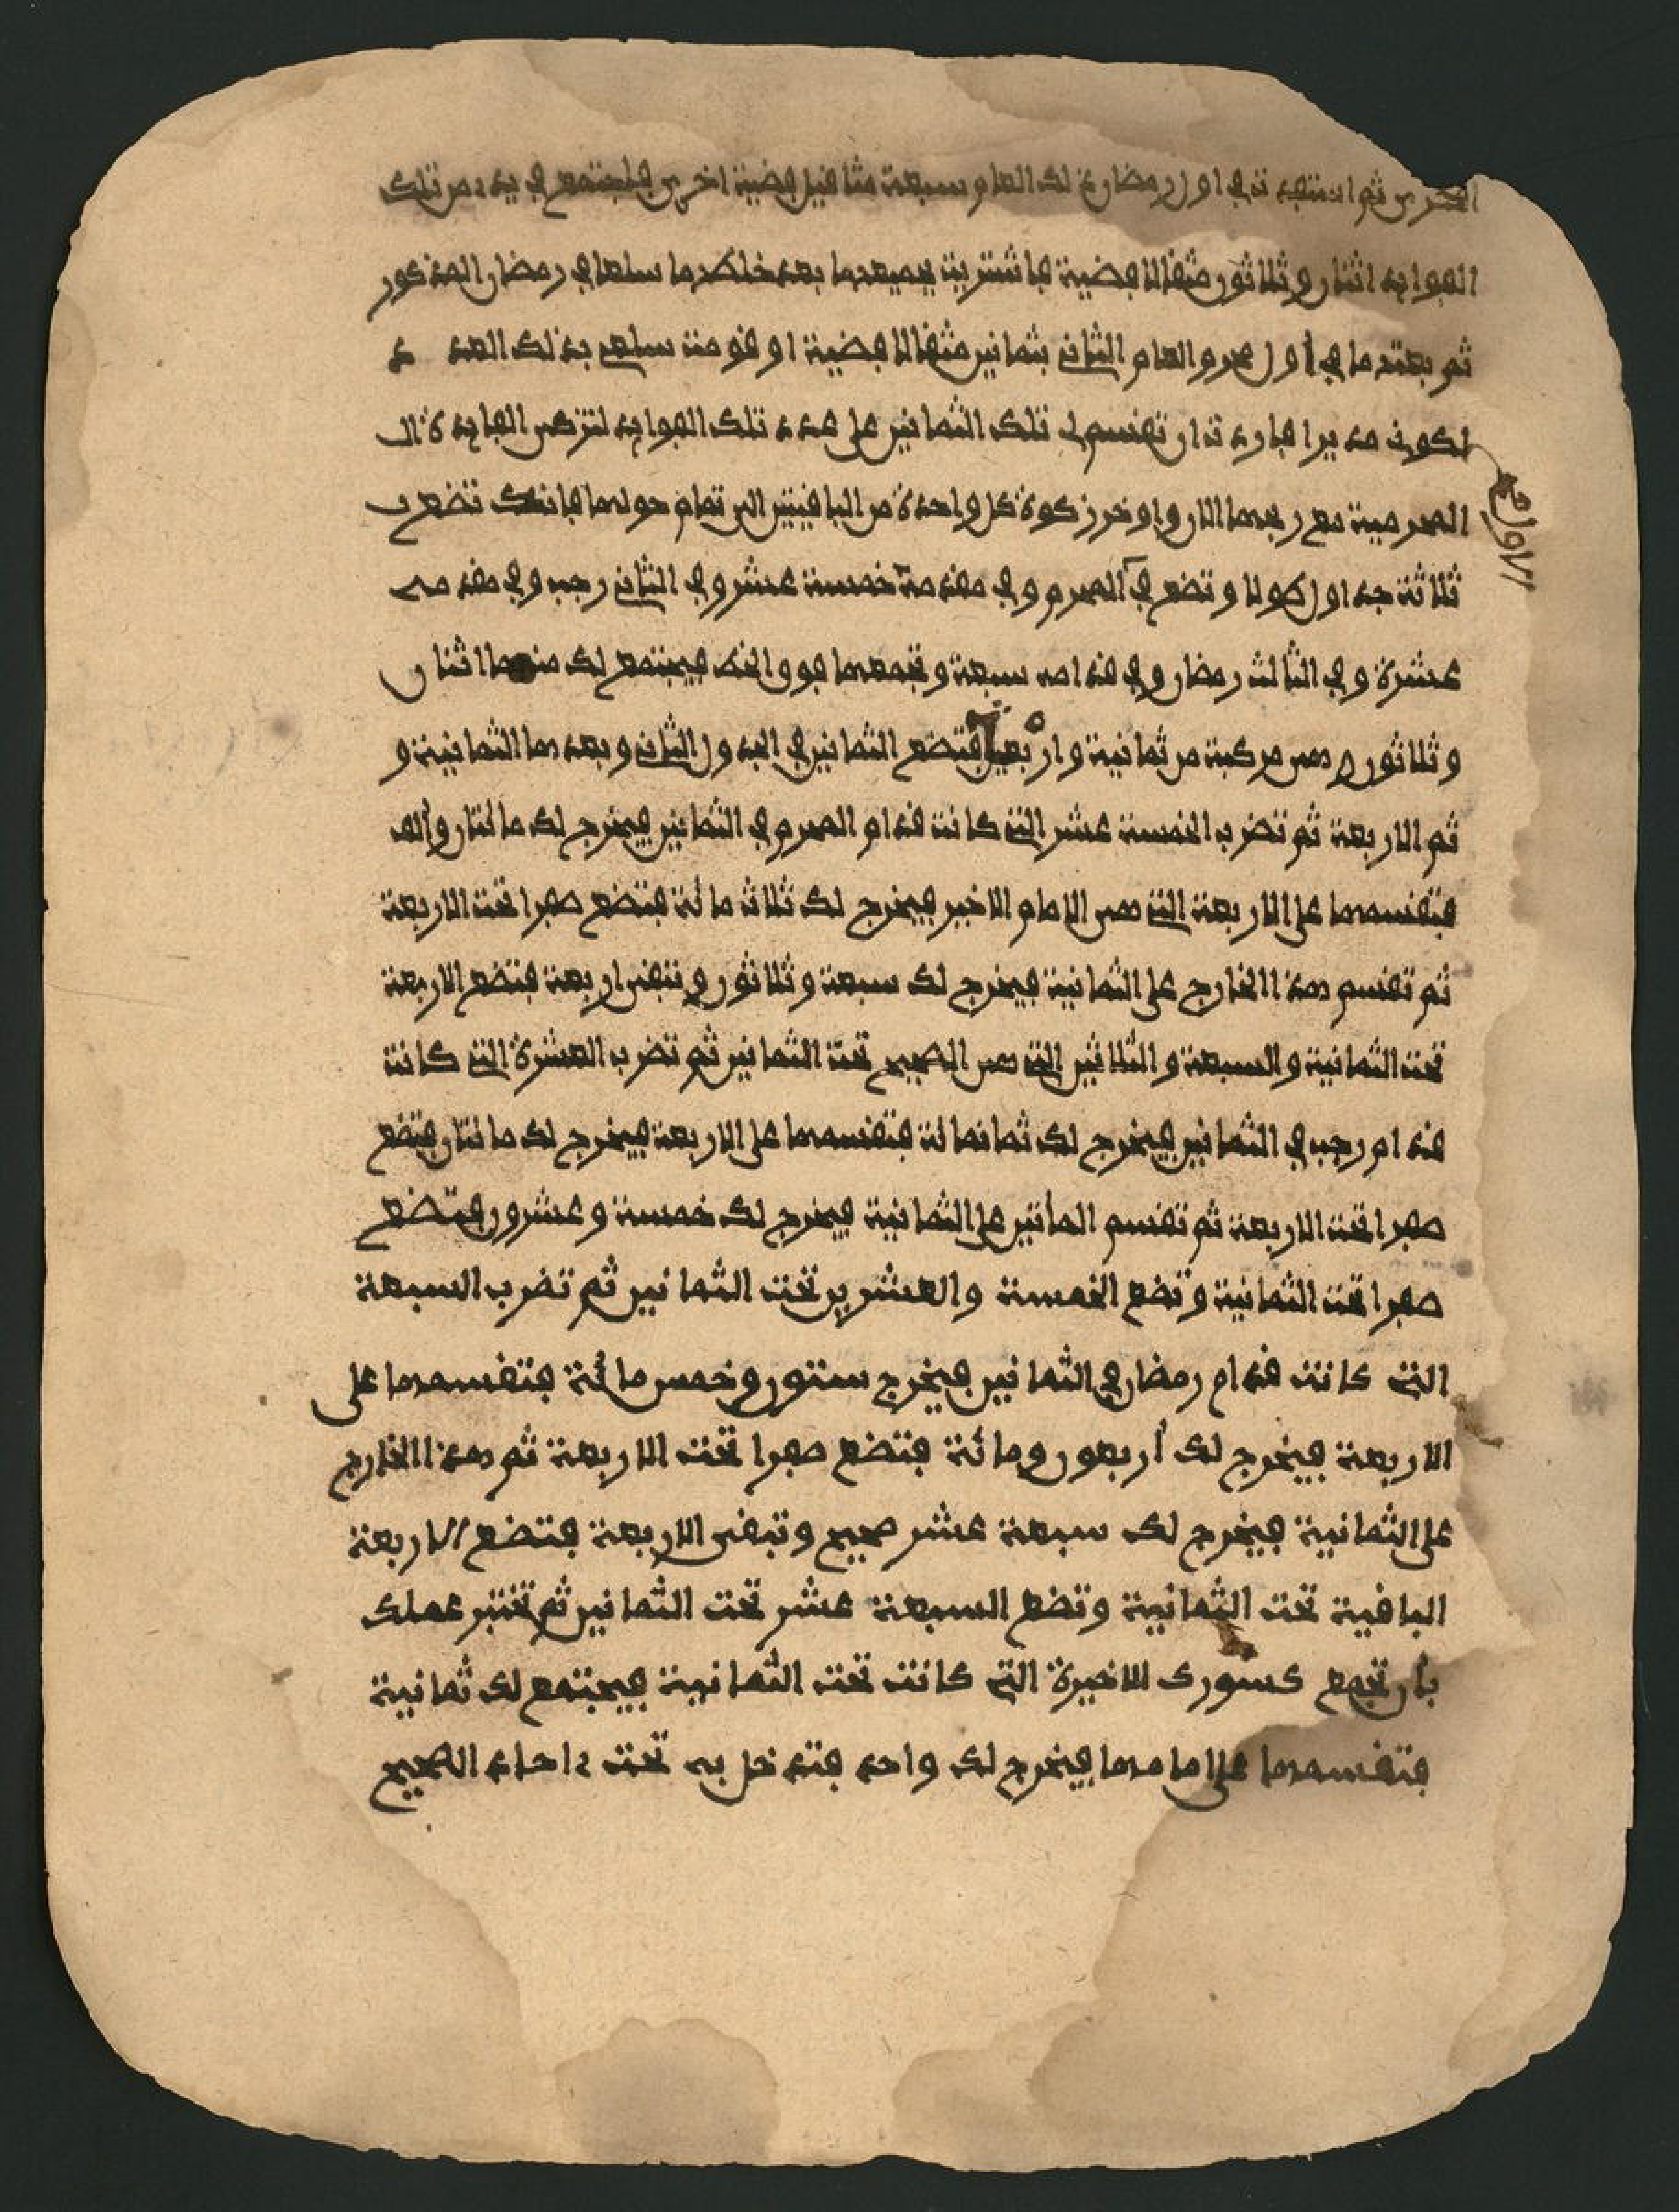 اخرى ثم استفدت في اول رمضان ذلك العام سبعة مثاقيل فضية اخرى فاجتمع في يدك من تلك
الفوايد اثنان وثلاثون مثقالا فضية فاشتريت بجميعها بعد خلطها سلعا في رمضان المذكور
ثم بعتها في أول محرم العام الثاني بثمانين مثقالا فضية او قومت سلعه بذلك العدد
لكونك مديرا فاردت ان تقسم لك تلك الثمانين على عدد تلك الفوايد لتزكي الفايدة الاولى
المحرمية مع ربحها الان واوخر زكوة كل واحدة من الباقيتين الى تمام حولها فانك تضع
ثلاثة جداول طولا وتضع في المحرم وفي مقدمه خمسة عشر وفي الثاني رجب وفي مقدمه
عشرة وفي الثالث رمضان وفي قدامه سبعة وتجمعها فوق الخط فيجتمع لك منها اثنان
وثلاثون وهي مركبة من ثمانية واربعة فتضع الثمانين في الجدول الثاني وبعدها الثمانية و
ثم الاربعة ثم تضرب الخمسة عشر التي كانت قدام المحرم في الثمانين فيخرج لك مائتان وألف
فتقسمها على الاربعة التي هي الامام الاخير فيخرج لك ثلاث مائة فتضع صفرا تحت الاربعة
ثم تقسم هذا الخارج على الثمانية فيخرج لك سبعة وثلاثون وتبقى اربعة فتضع الاربعة
تحت الثمانية والسبعة والثلاثين التي هي الصحيح تحت الثمانين ثم تضرب العشرة التي كانت
قدام رجب في الثمانين فيخرج لك ثمانمائة فتقسمها على الاربعة فيخرج لك مائتان فتضع
صفرا تحت الاربعة ثم تقسم المأتين على الثمانية فيخرج لك خمسة وعشرون فتضع
صفرا تحت الثمانية وتضع الخمسة والعشرين تحت الثمانين ثم تضرب السبعة
التي كانت قدام رمضان في الثمانين فيخرج ستون وخمس مائة فتقسمها على
الاربعة فيخرج لك أربعون ومائة فتضع صفرا تحت الاربعة ثم هذا الخارج
على الثمانية فيخرج لك سبعة عشر صحيح وتبقى الاربعة فتضع الاربعة
الباقية تحت الثمانية وتضع السبعة عشر تحت الثمانين ثم تختبر عملك
بأن تجمع كسورك الاخيرة التي كانت تحت الثمانية فيجتمع لك ثمانية
فتقسمها على امامها فيخرج لك واحد فتدخل به تحت ءاحاد الصحيح